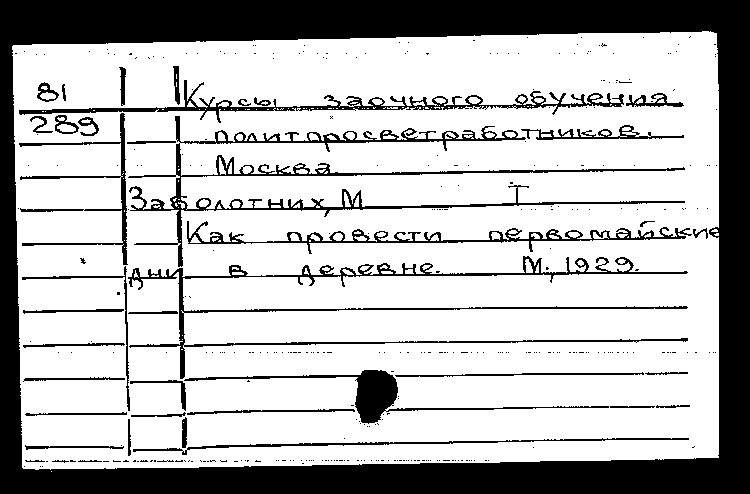 81 Курсы заочного обучения
289 политпросветработников.
Москва
Заболотных, М Т
Как провести первомайские
дни в деревне. М., 1929.